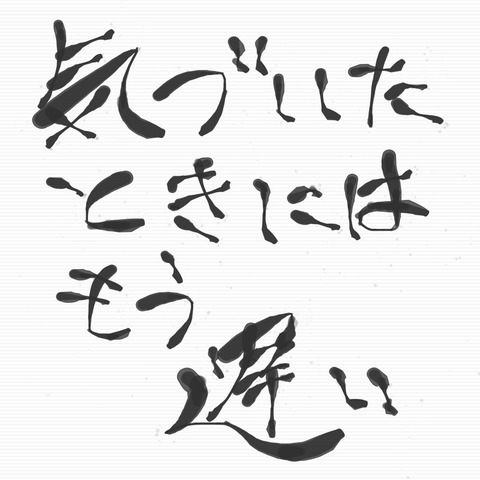 気づいた
ときには
もう
遅い